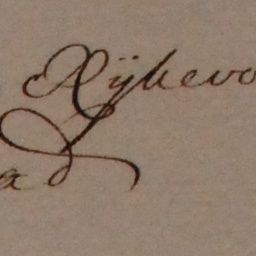 Rijkevo
ad